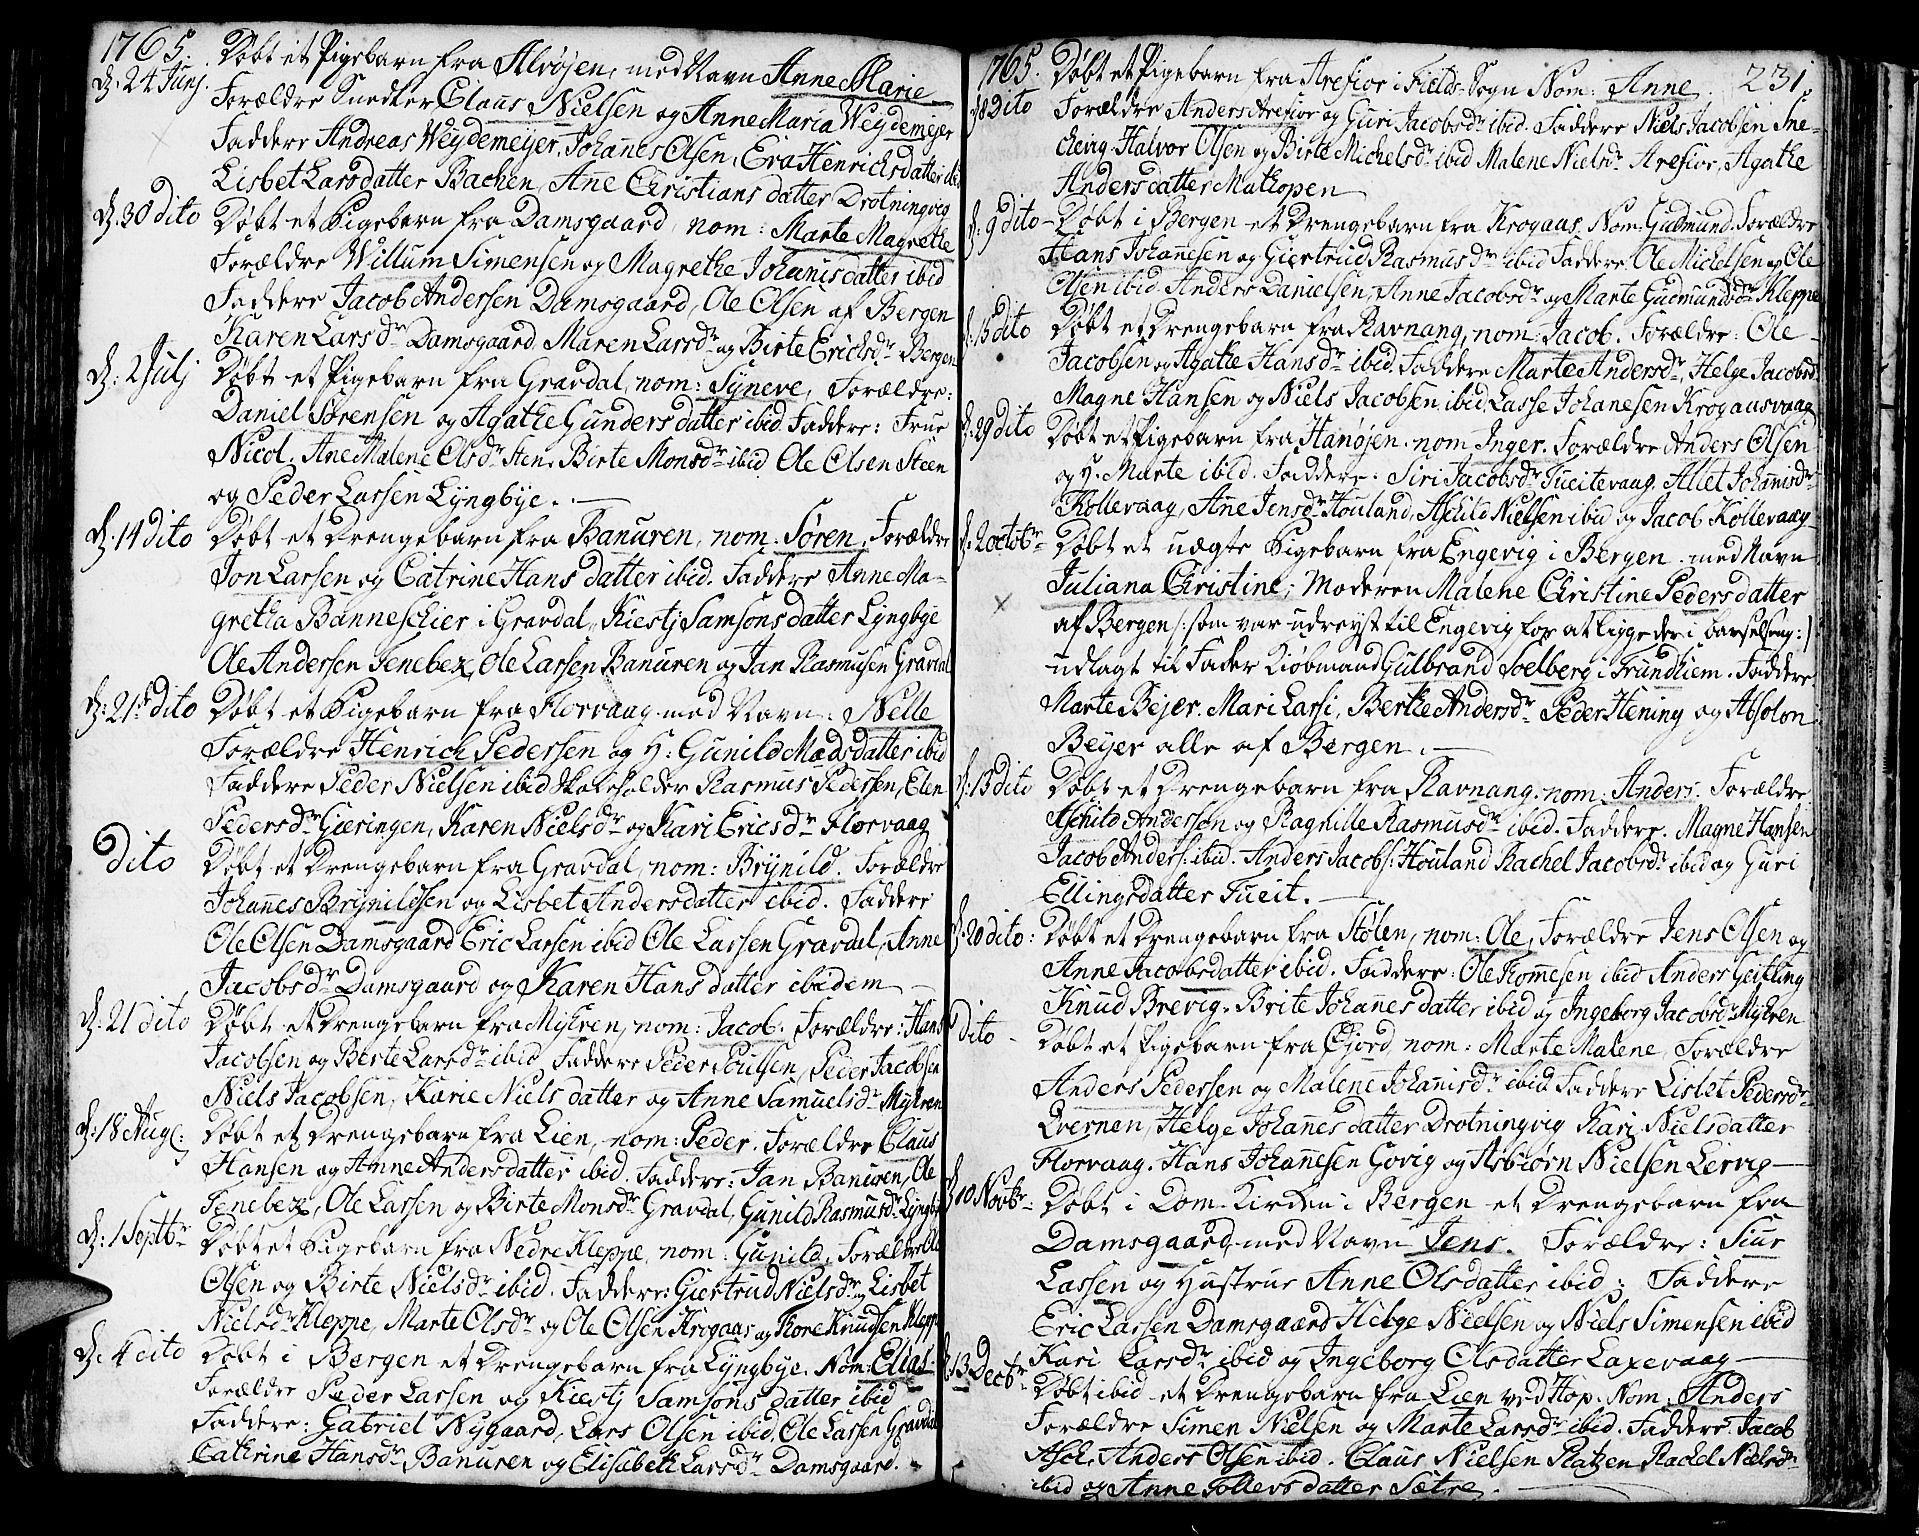 1765.
d: 24 Junj. Døbt et Pigebarn fra Alvøjen, med Navn Anne Marie
Forældre Snedker Claus Nielsen og Anne Maria Weydemejer
Faddere Andreas Weydemejer, Johanes Olsen, Eva Henrichsdatter ibid
Lisbet Larsdatter Bachen, Ane Christians datter Drotningvig
d: 30 dito Døbt et Pigebarn fra Damsgaard, nom: Marte Magrethe
Forældre Willum Simensen og Magrethe Johanisdatter ibid
Faddere Jacob Andersen Damsgaard, Ole Olsen af Bergen
Karen Lars dr Damsgaard Maren Larsdr og Birte Ericksdr Bergen
d: 2 Julj Døbt et Pigebarn fra Gravdal, nom: Syneve, Forældre:
Daniel Sørensen og Agathe Gunders datter ibid Faddere: Frue
Nicol. Ane Malene Olsdr Sten. Birte Monsdr ibid Ole Olsen Steen
og Peder Larsen Lyngbye.
d: 14 dito Døbt et Drengebarn fra Banuren, nom: Søren, Forældre
Jon Larsen og Catrine Hans datter ibid. Faddere Anne Ma-
gretha Banneschier i Gravdal, Kiestj Samsons datter Lyngbye
Ole Andersen Tenebex, Ole Larsen Banuren og Jan Rasmusen Gravdal
d: 21 dito Døbt et Pigebarn fra Florvaag med Navn: Nelle
Forældre Henrich Pedersen og H: Gunild Madsdatter ibid
Faddere Peder Nielsen ibid Skoleholder Rasmus Pedersen, Elen
Pedersdr Gieringen, Karen Nielsdr og Kari Ericsdr Florvaag
Dito Døbt et Drengebarn fra Gravdal, nom: Brynild. Forældre
Johanes Brynildsen og Lisbet Andersdatter ibid. Faddere
Ole Olsen Damsgaard Eric Larsen ibid Ole Larsen Gravdal, Anne
Jacobsdr Damsgaard og Karen Hans datter ibidem
d: 21 dito Døbt et Drengebarn fra Mykren, nom: Jacob. Forældre: Hans
Jacobsen og Berte Larsdr ibid Faddere Peder Poulsen, Peder Jacobsen
Niels Jacobsen, Karie Niels datter og Anne Samuelsdr Mykren
d: 18 Aug: Døbt et Drengebarn fra Lien, nom: Peder. Forældre Claus
Hansen og Anne Andersdatter ibid. Faddere: Jan Banuren, Ole
Tenebex, Ole Larsen og Birte Monsdr Gravdal, Gunild Rasmusdr Lyngbye
d: 1 Septbr Døbt et Pigebarn fra Nedre Kleppe, nom: Gunild. Forældre Ole
Olsen og Birte Nielsdr ibid. Faddere: Giertrud Nielsdr og Lisbet
Nielsdr Kleppe, Marte Olsdr og Ole Olsen Krogaas og Thore Knudsen Kleppe
d: 4 dito Døbt i Bergen et Drengebarn fra Lyngbye. Nom: Elias.
Forældre Peder Larsen og Kiestj Samsons datter ibid
Faddere: Gabriel Nygaard, Lars Olsen ibid, Ole Larsen Gravdal
Cathrine Hansdr Banuren og Elisabeth Larsdr Damsgaard.
1765. 231.
d: 8 Dito Døbt et Pigebarn fra Arefior i Field-Sogn Nom: Anne.
Forældre Anders Arefior og Guri Jacobsdr ibid. Faddere Niels Jacobsen Sne-
chevig. Halvor Olsen og Birte Michelsdr ibid Malene Nielsdr Arefior, Agathe
Andersdatter Matkopen
d: 9 dito Døbt i Bergen et Drengebarn fra Krogaas. Nom: Gudmund. Forældre
Hans Johanesen og Giertrud Rasmusdr ibid Faddere Ole Michelsen og Ole
Olsen ibid. Anders Danielsen, Anne Jacobsdr og Marte Gudmundsdr Kleppe
d: 15 dito Døbt et Drengebarn fra Ravnang, nom: Jacob. Forældre: Ole
Jacobsen og Agathe Hansdr ibid. Faddere Marte Andersdr, Helge Jacobsd
Magne Hansen og Niels Jacobsen ibid, Lasse Johanesen Krogaasvaag
d: 29 dito Døbt et Pigebarn fra Hanøjen. nom Inger. Forældre Anders Olsen
og H. Marte ibid. Faddere: Siri Jacobsdr Tueitevaag, Allet Johanisdr
Kollevaag, Ane Jensdr Houland, Aschild Nielsen ibid og Jacob Kollevaag
d: 2 octobr Døbt et uægte Pigebarn fra Engevig i Bergen. med Navn
Juliana Christine; Moderen Malene Christine Peders datter
af Bergen /: som var udreyst til Engevig for at ligge der i barselseng :/
udlagt til Fader Kiøbmand Gulbrand Soelberg i Trundhiem. Faddere
Marte Bejer. Mari Larsi, Berthe Andersdr Peder Hening og Absolon
Beyer alle af Bergen.
d: 13 dito Døbt et Drengebarn fra Ravnang. nom: Anders. Forældre
Aschild Andersen og Ragnille Rasmusdr ibid. Faddere: Magne Hansen
Jacob Anders: ibid. Anders Jacobs: Houland Rachel Jacobsdr ibid og Guri
Ellingsdatter Tueit.
d: 20 dito: Døbt et Drengebarn fra Stølen, nom: Ole, Forældre Jens Olsen og
Anne Jacobsdatter ibid. Faddere: Ole Tomesen ibid Anders Geitling
Knud Brevig. Brite Johanes datter ibid og Ingeborg Jacobsdr Mykren
Dito Døbt et Pigebarn fra Gjord, nom: Marte Malene, Forældre
Anders Pedersen og Malene Johanisdr ibid Faddere Lisbet Pedersdr
Qvernen, Helge Johanes datter Drotningvig Kari Nielsdatter
Florvaag. Hans Johanesen Govig og Asbiørn Nielsen Lervig
d 10 Novbr Døbt i Dom-Kirken i Bergen et Drengebarn fra
Damsgaard, med Navn Jens. Forældre: Siur
Lassen og Hustrue Anne Olsdatter ibid; Faddere
Eric Larsen Damsgaard Helge Nielsen og Niels Simensen ibid
Kari Larsdr ibid og Ingeborg Olsdatter Laxevaag
d 13 Decbr Døbt ibid et Drengebarn fra Lien ved Hop. Nom: Anders
Forældre Simen Nielsen og Marte Larsdr ibid. Faddere: Jacob
Asch, Anders Olsen ibid. Claus Nielsen Platzen Rachel Nielsdr
ibid og Anne Tollevs datter Sætre.